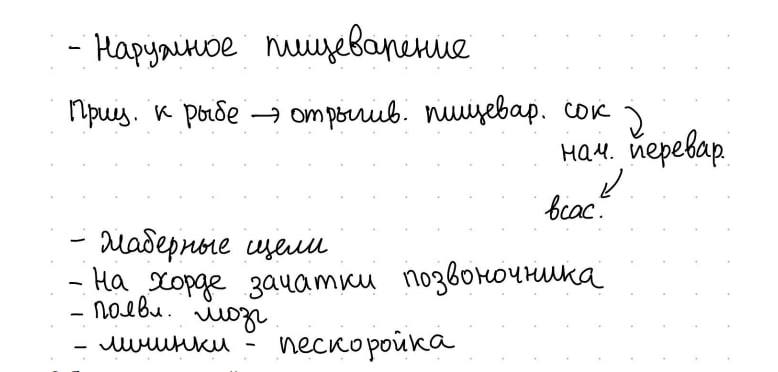 - Наружное пищеварение
Прищ. к рыбе → отрыгив. пищевар. сок
нач. перевар.
всас.
- Жаберные щели
- На хорде зачатки позвоночника
- появл. мозг
- личинки - пескоройка